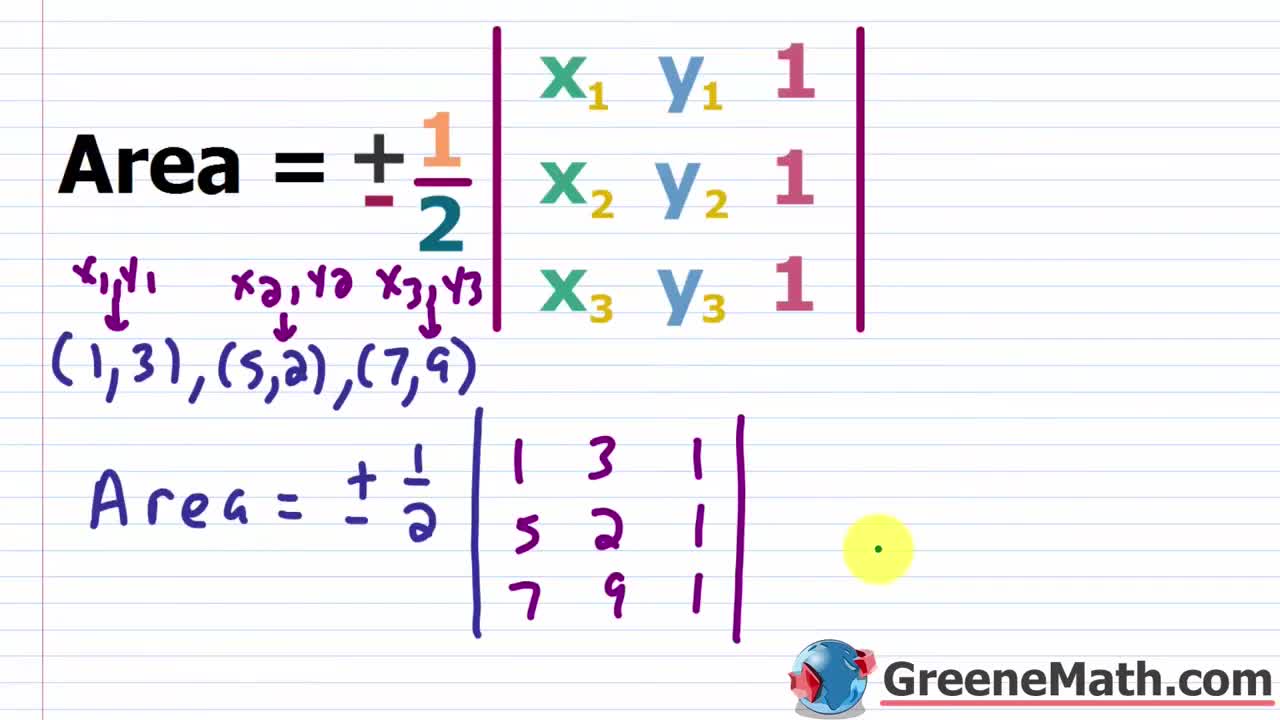 Area = ± 1/2 | x₁ y₁ 1 |
| x₂ y₂ 1 |
| x₃ y₃ 1 |
x₁,y₁ x₂,y₂ x₃,y₃
(1,3), (5,2), (7,9)
Area = ± 1/2 | 1 3 1 |
| 5 2 1 |
| 7 9 1 |
GreeneMath.com